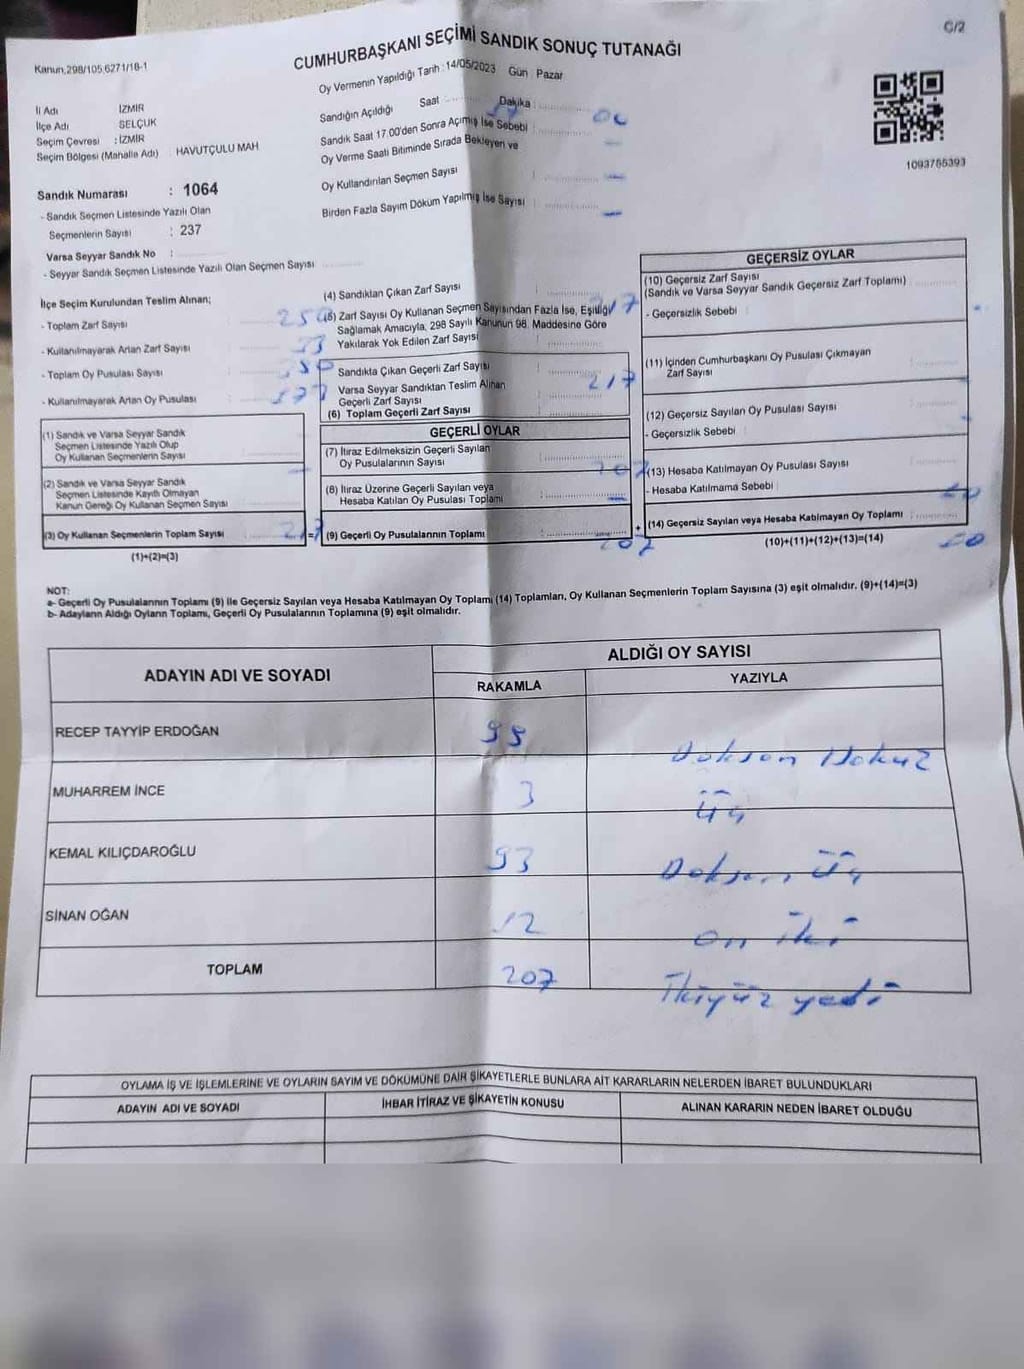 C/2
Kanun,298/105,6271/18-1
CUMHURBAŞKANI SEÇİMİ SANDIK SONUÇ TUTANAĞI
Oy Vermenin Yapıldığı Tarih : 14/05/2023 Gün : Pazar
İl Adı İZMİR
İlçe Adı SELÇUK
Seçim Çevresi : İZMİR
Seçim Bölgesi (Mahalle Adı) : HAVUTÇULU MAH
Sandık Numarası : 1064
- Sandık Seçmen Listesinde Yazılı Olan
Seçmenlerin Sayısı : 237
Varsa Seyyar Sandık No :
- Seyyar Sandık Seçmen Listesinde Yazılı Olan Seçmen Sayısı
Sandığın Açıldığı Saat : Dakika : 00
Sandık Saat 17.00'den Sonra Açılmış İse Sebebi :
Oy Verme Saati Bitiminde Sırada Bekleyen ve
Oy Kullandırılan Seçmen Sayısı :
Birden Fazla Sayım Döküm Yapılmış İse Sayısı :
1093765393
İlçe Seçim Kurulundan Teslim Alınan;
- Toplam Zarf Sayısı
- Kullanılmayarak Artan Zarf Sayısı
- Toplam Oy Pusulası Sayısı
- Kullanılmayarak Artan Oy Pusulası
(1) Sandık ve Varsa Seyyar Sandık
Seçmen Listesinde Yazılı Olup
Oy Kullanan Seçmenlerin Sayısı
(2) Sandık ve Varsa Seyyar Sandık
Seçmen Listesinde Kayıtlı Olmayan
Kanun Gereği Oy Kullanan Seçmen Sayısı
(3) Oy Kullanan Seçmenlerin Toplam Sayısı 217
(1)+(2)=(3)
(4) Sandıktan Çıkan Zarf Sayısı 217
(5) Zarf Sayısı Oy Kullanan Seçmen Sayısından Fazla İse, Eşitliği
Sağlamak Amacıyla, 298 Sayılı Kanunun 98. Maddesine Göre
Yakılarak Yok Edilen Zarf Sayısı
Sandıkta Çıkan Geçerli Zarf Sayısı
Varsa Seyyar Sandıktan Teslim Alınan
Geçerli Zarf Sayısı
(6) Toplam Geçerli Zarf Sayısı 217
GEÇERLİ OYLAR
(7) İtiraz Edilmeksizin Geçerli Sayılan
Oy Pusulalarının Sayısı 207
(8) İtiraz Üzerine Geçerli Sayılan veya
Hesaba Katılan Oy Pusulası Toplamı
= (9) Geçerli Oy Pusulalarının Toplamı 207
GEÇERSİZ OYLAR
(10) Geçersiz Zarf Sayısı
(Sandık ve Varsa Seyyar Sandık Geçersiz Zarf Toplamı)
- Geçersizlik Sebebi :
(11) İçinden Cumhurbaşkanı Oy Pusulası Çıkmayan
Zarf Sayısı
(12) Geçersiz Sayılan Oy Pusulası Sayısı
- Geçersizlik Sebebi :
(13) Hesaba Katılmayan Oy Pusulası Sayısı
- Hesaba Katılmama Sebebi :
+ (14) Geçersiz Sayılan veya Hesaba Katılmayan Oy Toplamı
(10)+(11)+(12)+(13)=(14)
NOT:
a- Geçerli Oy Pusulalarının Toplamı (9) ile Geçersiz Sayılan veya Hesaba Katılmayan Oy Toplamı (14) Toplamları, Oy Kullanan Seçmenlerin Toplam Sayısına (3) eşit olmalıdır. (9)+(14)=(3)
b- Adayların Aldığı Oyların Toplamı, Geçerli Oy Pusulalarının Toplamına (9) eşit olmalıdır.
ADAYIN ADI VE SOYADI
ALDIĞI OY SAYISI
RAKAMLA YAZIYLA
RECEP TAYYİP ERDOĞAN 99 Doksan Dokuz
MUHARREM İNCE 3 Üç
KEMAL KILIÇDAROĞLU 93 Doksan Üç
SİNAN OĞAN 12 on iki
TOPLAM 207 İkiyüz yedi
OYLAMA İŞ VE İŞLEMLERİNE VE OYLARIN SAYIM VE DÖKÜMÜNE DAİR ŞİKAYETLERLE BUNLARA AİT KARARLARIN NELERDEN İBARET BULUNDUKLARI
ADAYIN ADI VE SOYADI İHBAR İTİRAZ VE ŞİKAYETİN KONUSU ALINAN KARARIN NEDEN İBARET OLDUĞU